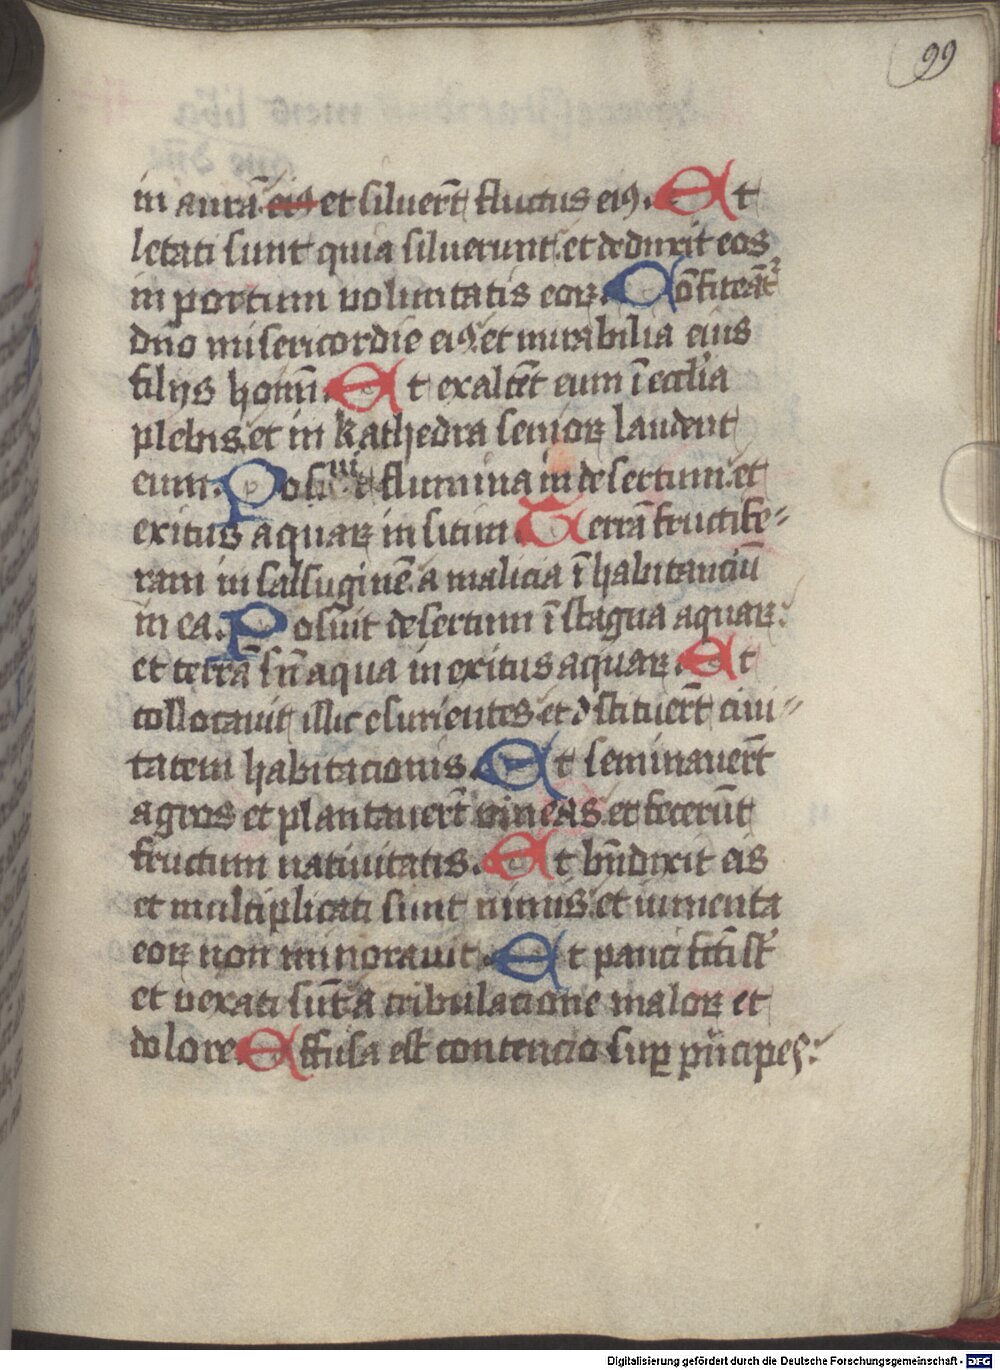 99
in aurā eiꝯ et siluer̄t fluctus eiꝯ. Et
letati sunt quia siluerunt et deduxit eos
in portum voluntatis eoꝝ. Cōfiteāt᷑
dn̄o misericordie eiꝯ et mirabilia eius
filijs homī. Et exaltēt eum ī ecclīa
plebis et in kathedra senioꝝ laudent
eum. Posuit flumina in desertum et
exitus aquaꝝ in sitim Terrā fructife⸗
ram in salsuginē a malicia īhabitanciū
in ea. Posuit desertum ī stagna aquaꝝ:
et terrā sn̄ aqua in exitus aquaꝝ. Et
collocauit illic esurientes et ꝯstituer̄t ciui⸗
tatem habitacionis. Et seminauer̄t
agros et plantauer̄t vineas et fecerūt
fructum natiuitatis. Et bn̄dixit eis
et multiplicati sunt nimis et iumenta
eoꝝ non minorauit. Et pauci fc̄ti st̄
et vexati sūt a tribulacione maloꝝ et
dolore Effusa est contencio suꝑ prīcipes:
Digitalisierung gefördert durch die Deutsche Forschungsgemeinschaft - DFG